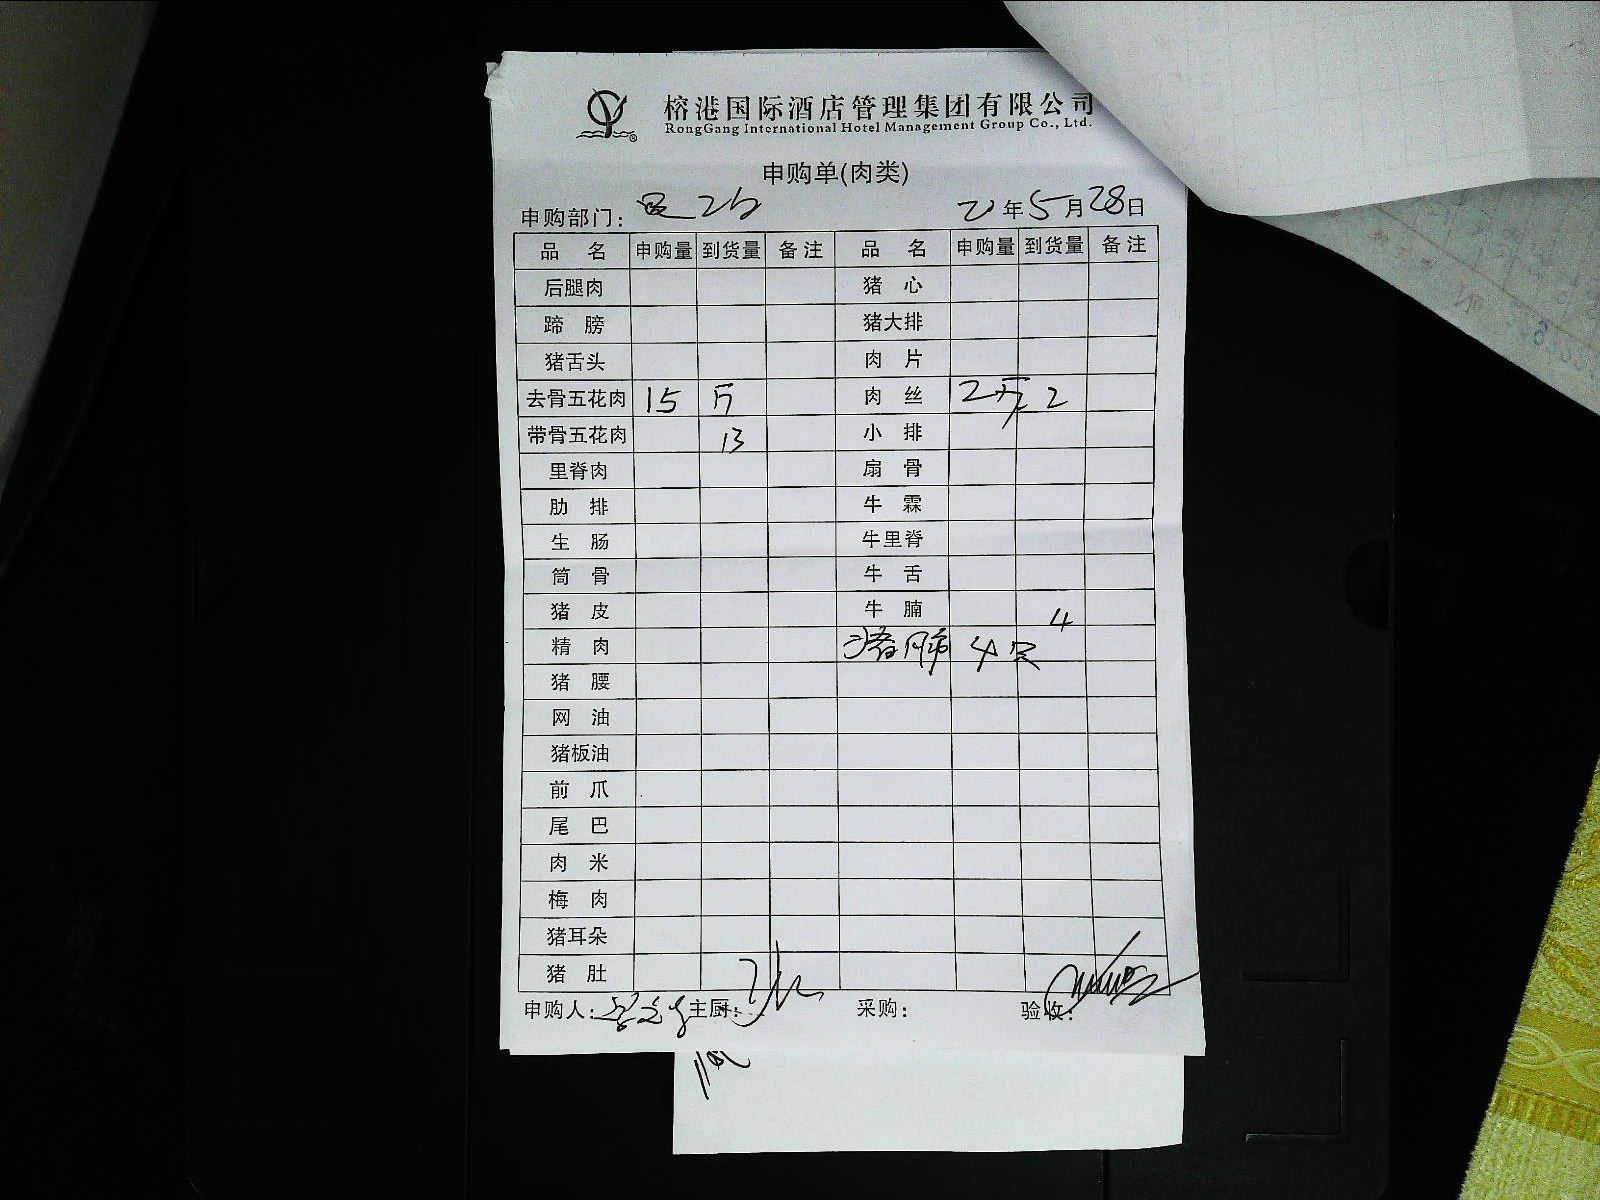 榕港国际酒店管理集团有限公司
RongGang International Hotel Management Group Co., Ltd.
申购单(肉类)
申购部门: 21年5月28日
品名 申购量 到货量 备注 品名 申购量 到货量 备注
后腿肉 猪心
蹄膀 猪大排
猪舌头 肉片
去骨五花肉 15斤 肉丝 2斤 2
带骨五花肉 13 小排
里脊肉 扇骨
肋排 牛霖
生肠 牛里脊
筒骨 牛舌
猪皮 牛腩 4
精肉 猪肺 4只
猪腰
网油
猪板油
前爪
尾巴
肉米
梅肉
猪耳朵
猪肚
申购人: 主厨: 采购: 验收: